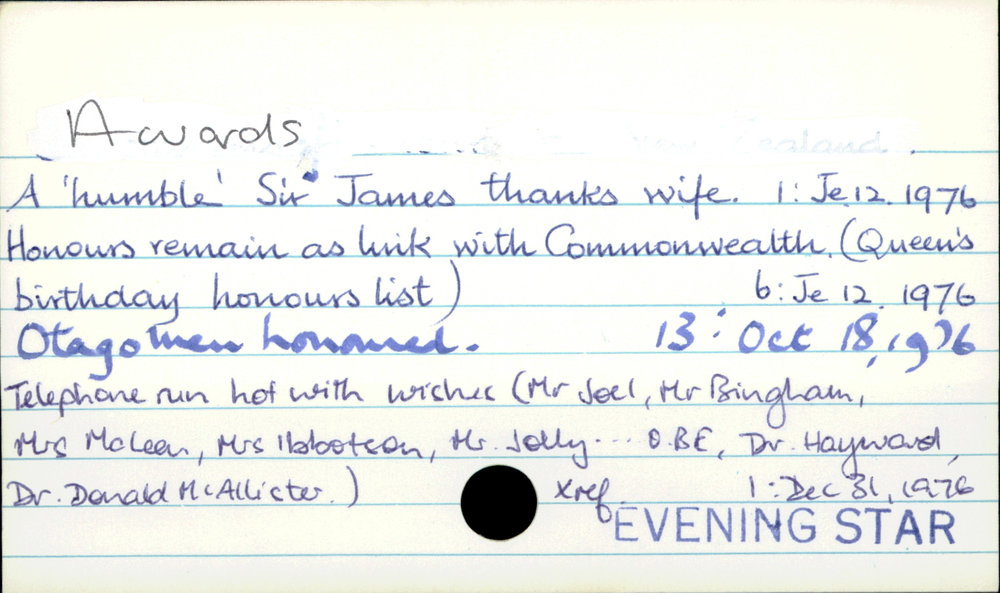 Awards
A 'humble' Sir James thanks wife. 1: Je 12. 1976
Honours remain as link with Commonwealth. (Queen's
birthday honours list) 6: Je 12. 1976
Otago men honoured. 13: Oct 18, 1976
Telephone run hot with wishes (Mr Joel, Mr Bingham,
Mrs McLean, Mrs Ibbotson, Mr. Jolly... O.BE, Dr. Hayward,
Dr. Donald McAllister.) Xref. 1: Dec 31, 1976
EVENING STAR